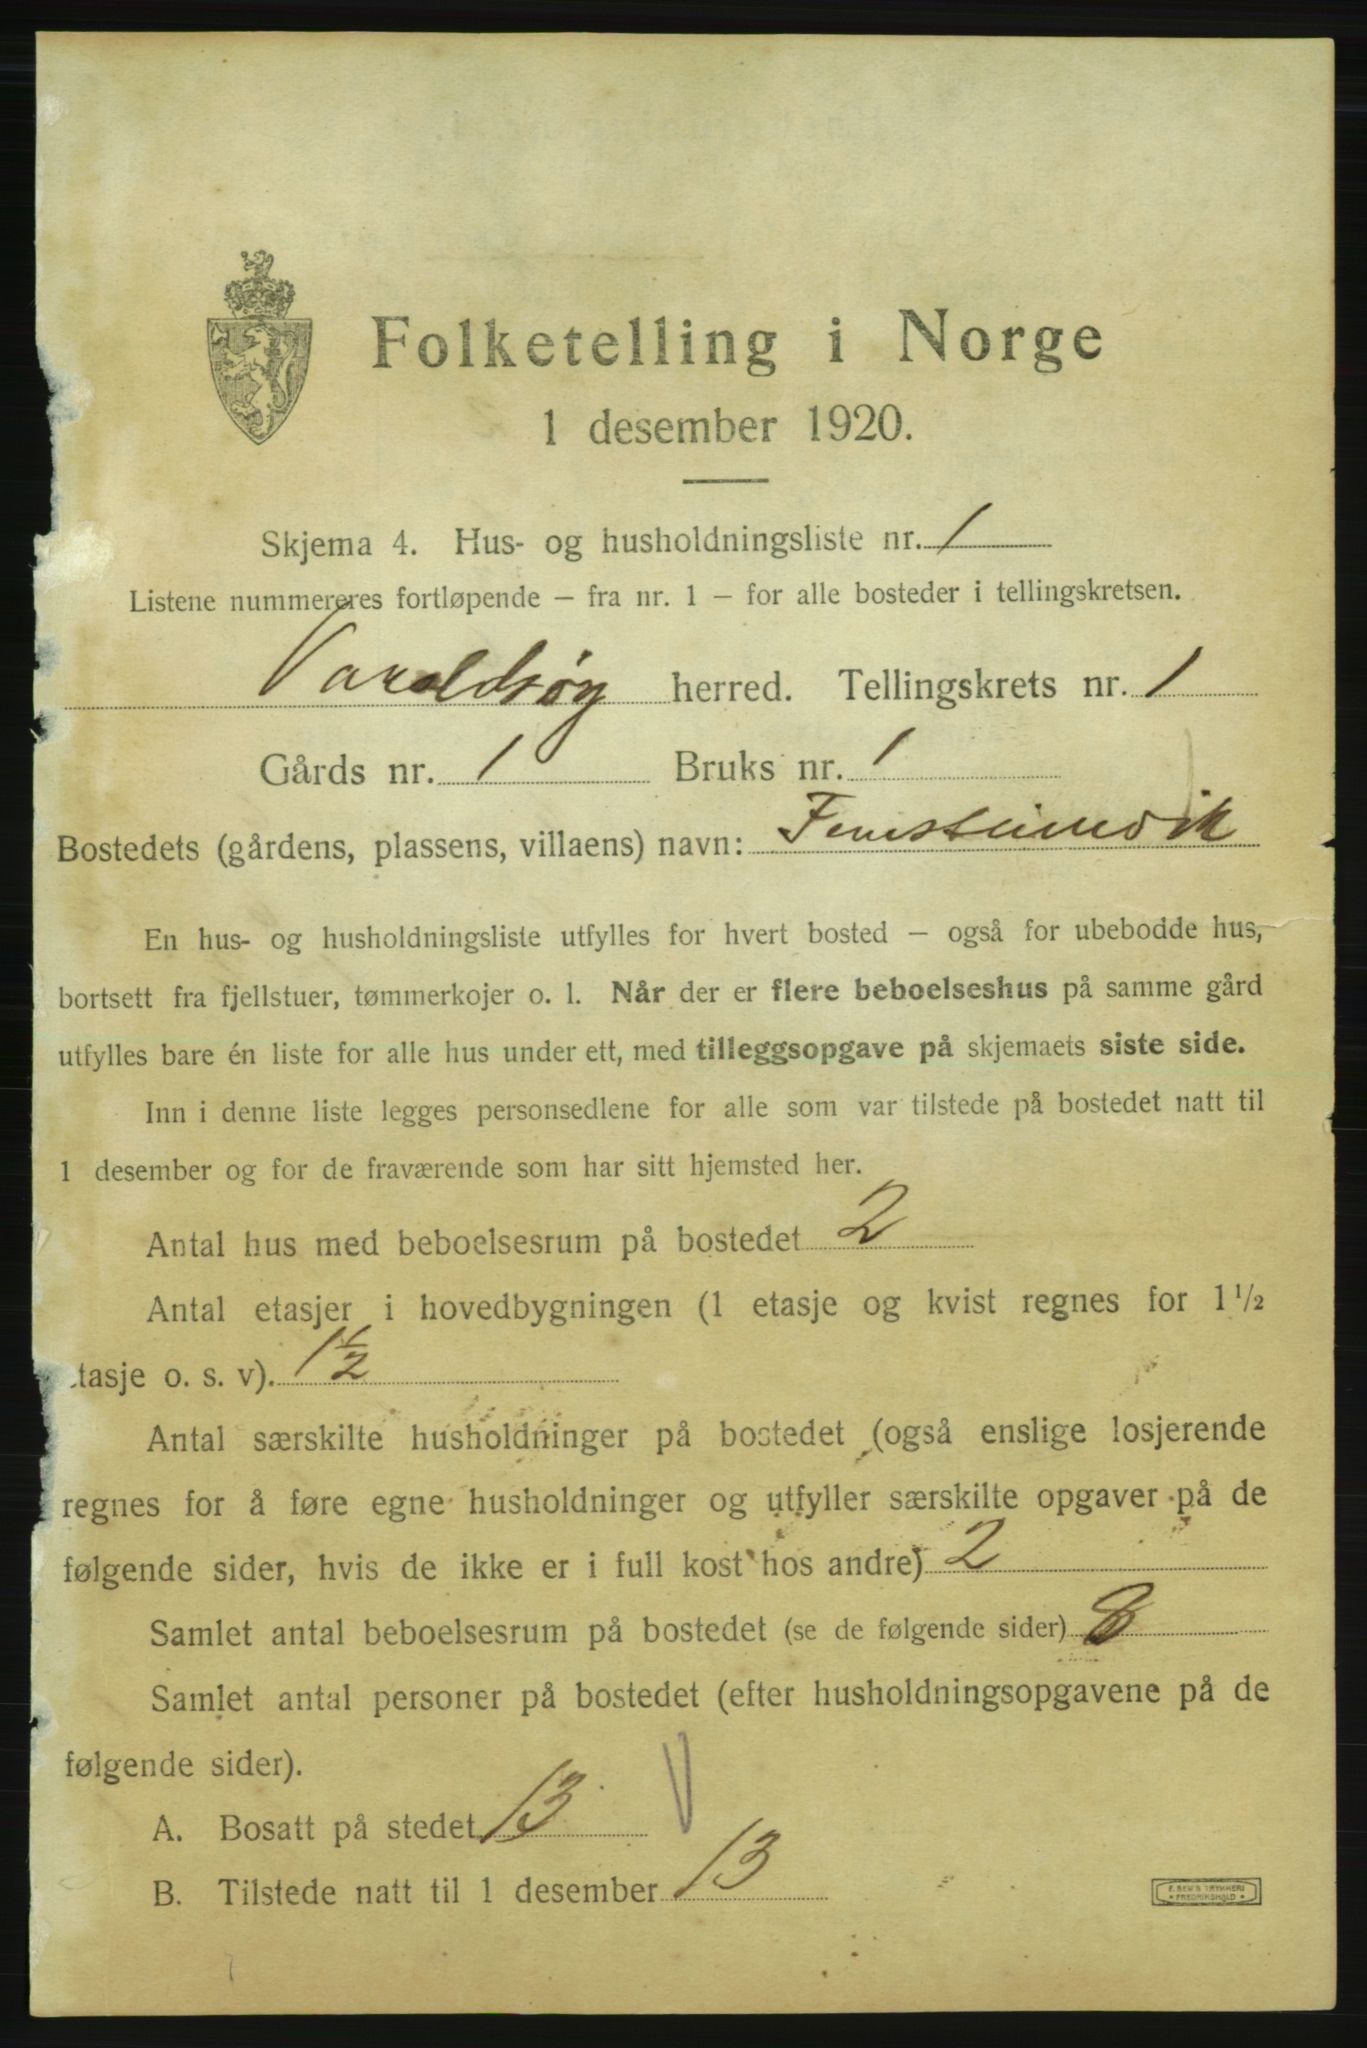 Folketelling i Norge
1 desember 1920.
Skjema 4. Hus- og husholdningsliste nr. 1
Listene nummereres fortløpende – fra nr. 1 – for alle bosteder i tellingskretsen.
Varaldsøy herred. Tellingskrets nr. 1
Gårds nr. 1 Bruks nr. 1
Bostedets (gårdens, plassens, villaens) navn:
En hus- og husholdningsliste utfylles for hvert bosted – også for ubebodde hus,
bortsett fra fjellstuer, tømmerkojer o. l. Når der er flere beboelseshus på samme gård
utfylles bare én liste for alle hus under ett, med tilleggsopgave på skjemaets siste side.
Inn i denne liste legges personsedlene for alle som var tilstede på bostedet natt til
1 desember og for de fraværende som har sitt hjemsted her.
Antal hus med beboelsesrum på bostedet 2
Antal etasjer i hovedbygningen (1 etasje og kvist regnes for 1 1/2
tasje o. s. v). 1 1/2
Antal særskilte husholdninger på bostedet (også enslige losjerende
regnes for å føre egne husholdninger og utfyller særskilte opgaver på de
følgende sider, hvis de ikke er i full kost hos andre) 2
Samlet antal beboelsesrum på bostedet (se de følgende sider) 8
Samlet antal personer på bostedet (efter husholdningsopgavene på de
følgende sider).
A. Bosatt på stedet 13
B. Tilstede natt til 1 desember 13
TRYKKERI
FREDRIKSHALD